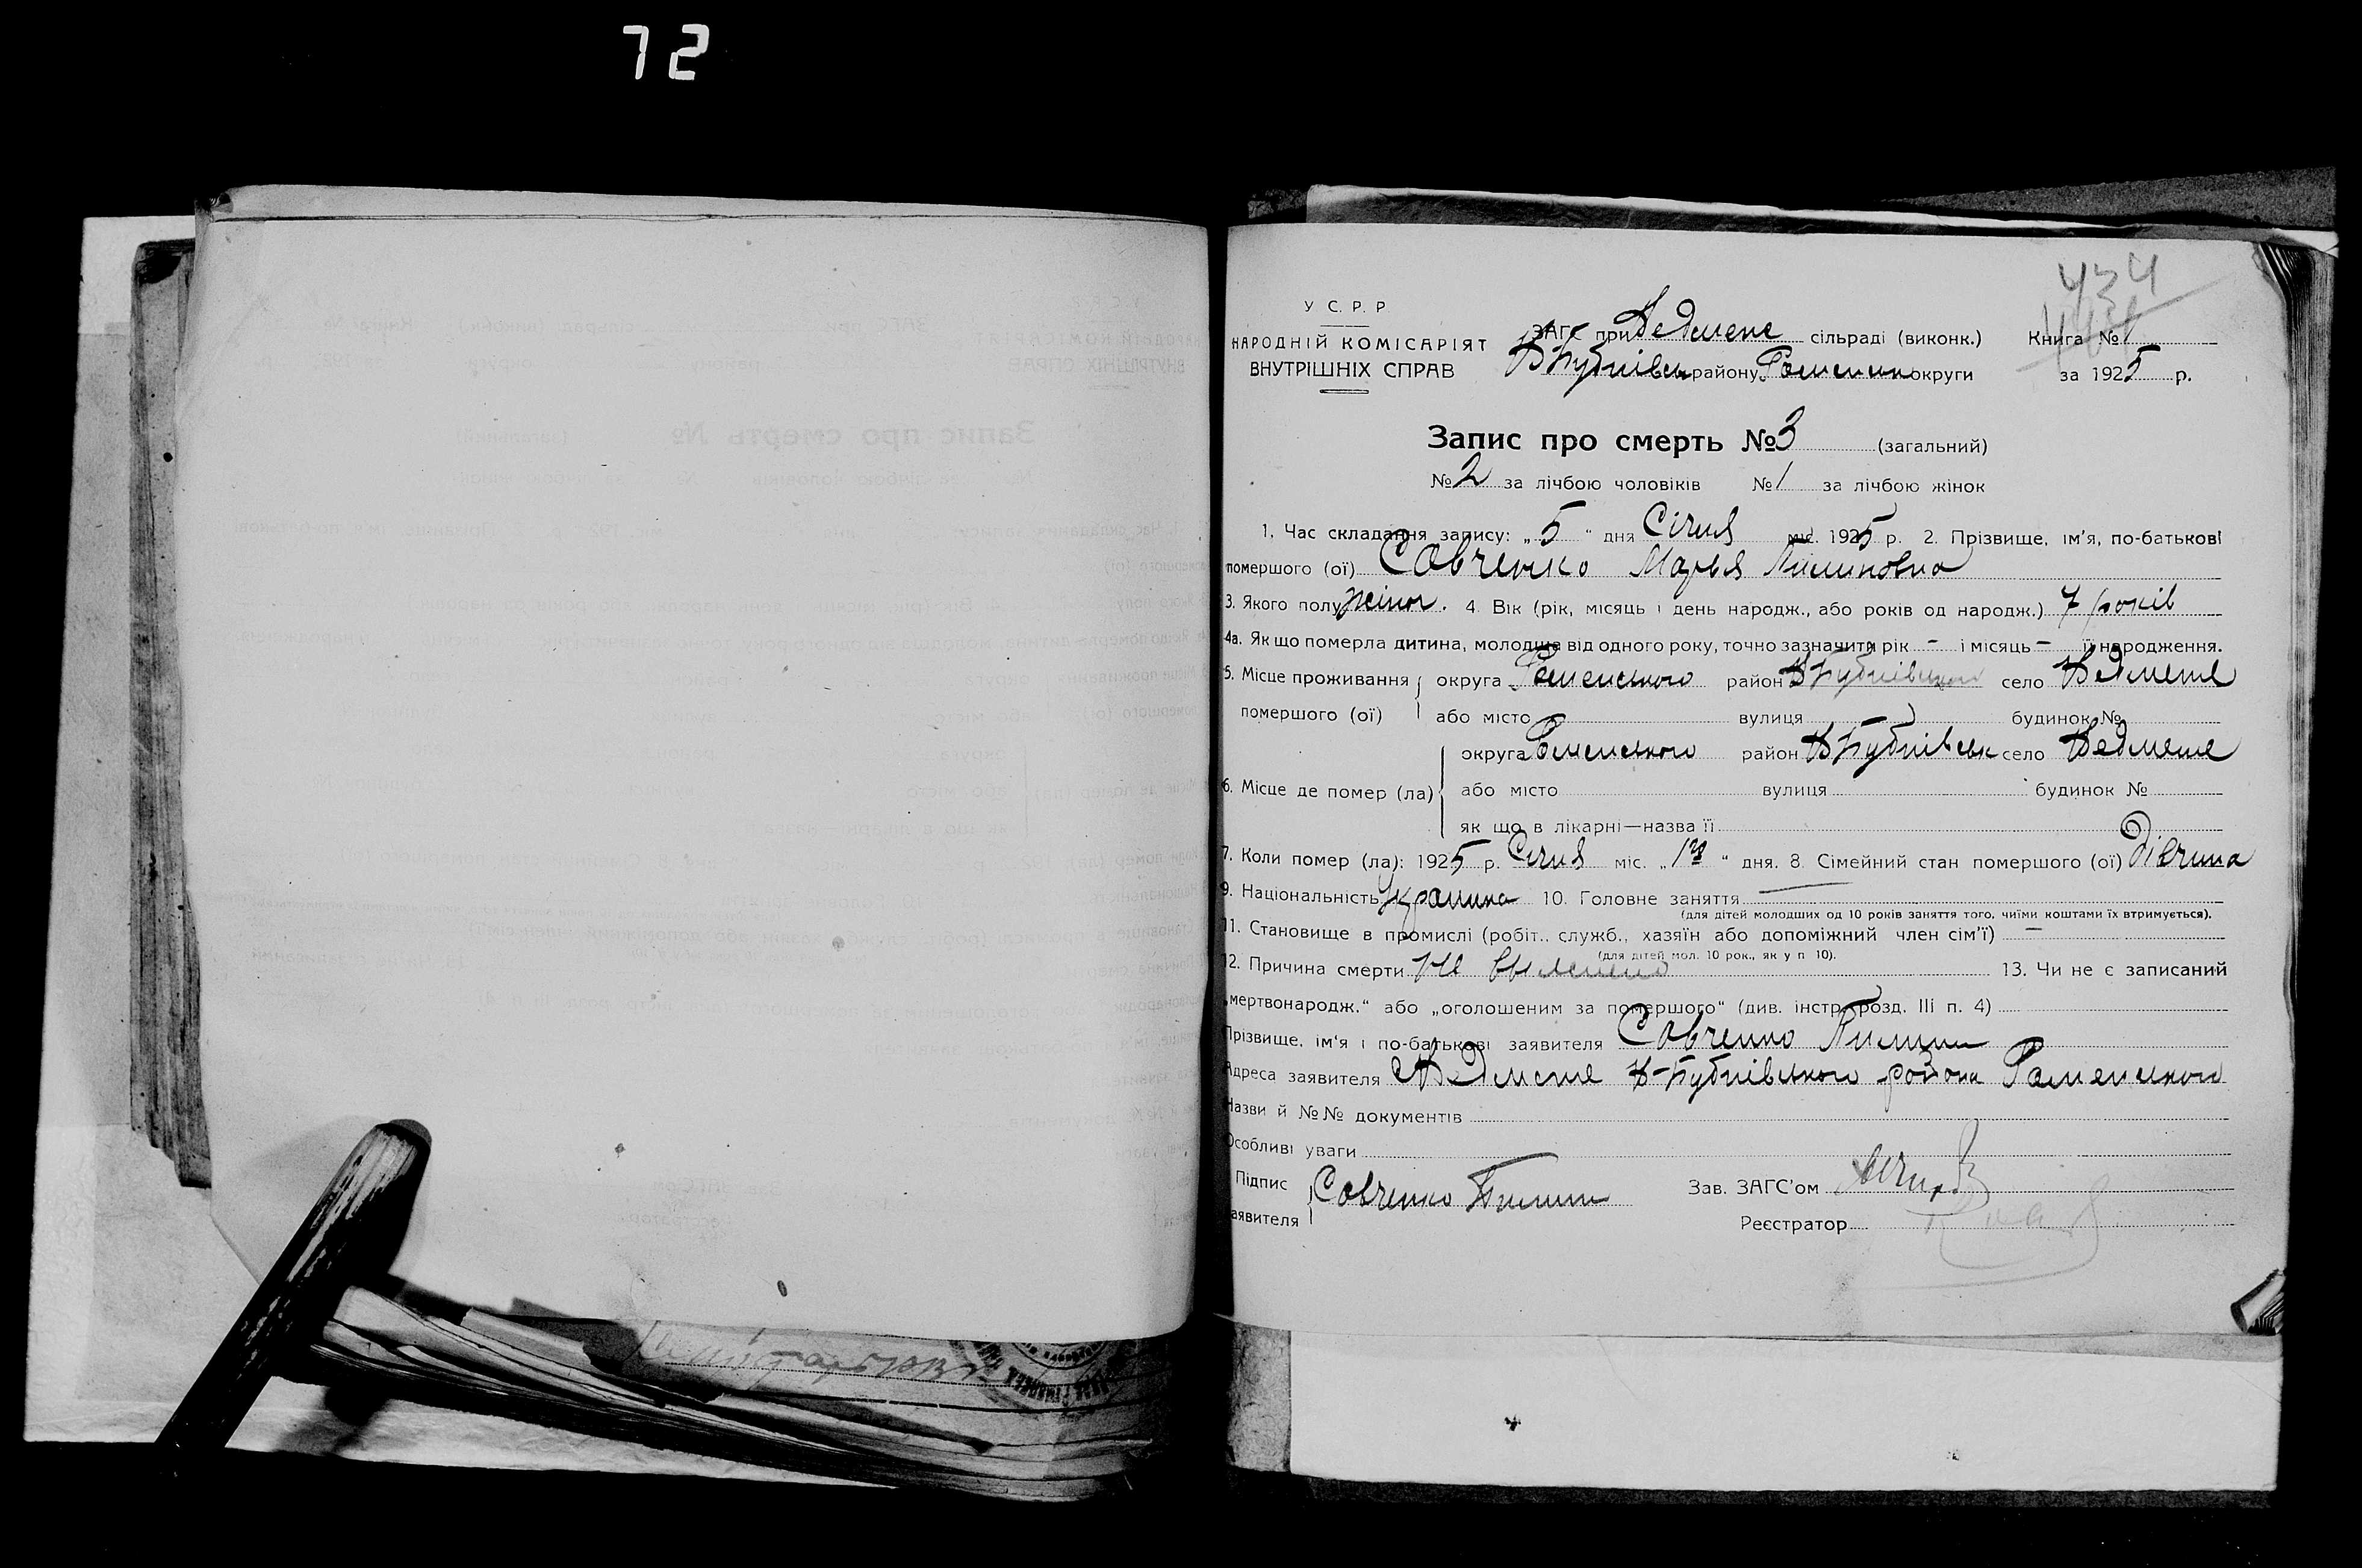 72
434
У С. Р. Р.
НАРОДНІЙ КОМІСАРІЯТ
ВНУТРІШНІХ СПРАВ
ЗАГС при Ведмеже сільраді (виконк.) Книга № 1
В Бубнівськ району Роменськ округи за 1925 р.
Запис про смерть № 3 (загальний)
№ 2 за лічбою чоловіків № 1 за лічбою жінок
1. Час складання запису: „5“ дня Січня міс. 1925 р. 2. Прізвище, ім’я, по-батькові
помершого (ої) Савченко Марья
3. Якого полу жіноч. 4. Вік (рік, місяць і день народж., або років од народж.) 7 років
4а. Як що померла дитина, молодша від одного року, точно зазначити рік – і місяць – її народження.
5. Місце проживання округа Роменського район В Бубнівського село Ведмеже
помершого (ої) або місто вулиця будинок №
округа Роменського район В Бубнівськ село Ведмеже
6. Місце де помер (ла) або місто вулиця будинок №
як що в лікарні—назва її
7. Коли помер (ла): 1925 р. Січня міс. „ “ дня. 8. Сімейний стан помершого (ої) Дівчина
9. Національність 10. Головне заняття —
(для дітей молодших од 10 років заняття того, чиїми коштами їх втримується).
11. Становище в промислі (робіт., служб., хазяїн або допоміжний член сім’ї) –
(для дітей мол. 10 рок., як у п 10).
12. Причина смерти Не 13. Чи не є записаний
„мертвонародж.“ або „оголошеним за помершого“ (див. інстр. розд. III п. 4)
Прізвище, ім‘я і по-батькові заявителя Савченко
Адреса заявителя Ведмеже В-Бубнівського района Роменського
Назви й №№ документів
Особливі уваги
Підпис Савченко Зав. ЗАГС’ом
заявителя Реєстратор